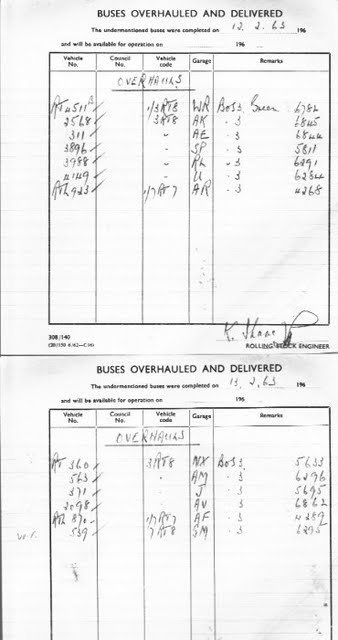 BUSES OVERHAULED AND DELIVERED
The undermentioned buses were completed on 12.2.63 196
and will be available for operation on 196
Vehicle No. Council No. Vehicle code Garage Remarks
OVERHAULS
RT 4511 1/3RT8 WR Bo 53 Green 6782
2568 3RT8 AK " 3 6845
311 " AE " 3 6844
3896 " SP " 3 5811
3988 " RL " 3 6291
4149 " U " 3 6284
RTL 923 1/7RT7 AR " 3 4268
308/140 ROLLING STOCK ENGINEER
BUSES OVERHAULED AND DELIVERED
The undermentioned buses were completed on 13.2.63 196
and will be available for operation on 196
Vehicle No. Council No. Vehicle code Garage Remarks
OVERHAULS
RT 360 3RT8 NX 5633
563 AM 3 6296
371 J 3 5695
2098 AV 3 6862
RTL 870 1/7RT7 AF 3 4289
539 7RT8 SM 3